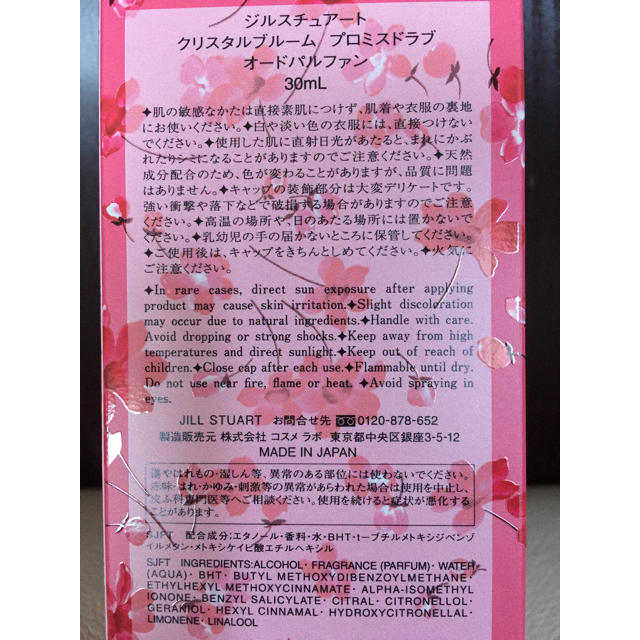 ジルスチュアート
クリスタルブルーム プロミスドラブ
オードパルファン
30mL
✦肌の敏感なかたは直接素肌につけず、肌着や衣服の裏地
にお使いください。✦白や淡い色の衣服には、直接つけない
でください。✦使用した肌に直射日光があたると、まれにかぶ
れたりシミになることがありますのでご注意ください。✦天然
成分配合のため、色が変わることがありますが、品質に問題
はありません。✦キャップの装飾部分は大変デリケートです。
強い衝撃や落下などで破損する場合がありますのでご注意
ください。✦高温の場所や、日のあたる場所には置かないで
ください。✦乳幼児の手の届かないところに保管してください。
✦ご使用後は、キャップをきちんとしめてください。✦火気に
ご注意ください。
✦In rare cases, direct sun exposure after applying
product may cause skin irritation.✦Slight discoloration
may occur due to natural ingredients.✦Handle with care.
Avoid dropping or strong shocks.✦Keep away from high
temperatures and direct sunlight.✦Keep out of reach of
children.✦Close cap after each use.✦Flammable until dry.
Do not use near fire, flame or heat. ✦Avoid spraying in
eyes.
JILL STUART お問合せ先 0120-878-652
製造販売元 株式会社 コスメ ラボ 東京都中央区銀座3-5-12
MADE IN JAPAN
傷やはれもの・湿しん等、異常のある部位には使わないでください。
赤味・はれ・かゆみ・刺激等の異常があらわれた場合は使用を中止し、
皮ふ科専門医等へご相談ください。使用を続けると症状が悪化する
ことがあります。
SJFT 配合成分:エタノール・香料・水・BHT・t-ブチルメトキシジベンゾ
イルメタン・メトキシケイヒ酸エチルヘキシル
SJFT INGREDIENTS:ALCOHOL・FRAGRANCE (PARFUM)・WATER
(AQUA)・BHT・BUTYL METHOXYDIBENZOYLMETHANE・
ETHYLHEXYL METHOXYCINNAMATE・ALPHA-ISOMETHYL
IONONE・BENZYL SALICYLATE・CITRAL・CITRONELLOL・
GERANIOL・HEXYL CINNAMAL・HYDROXYCITRONELLAL・
LIMONENE・LINALOOL